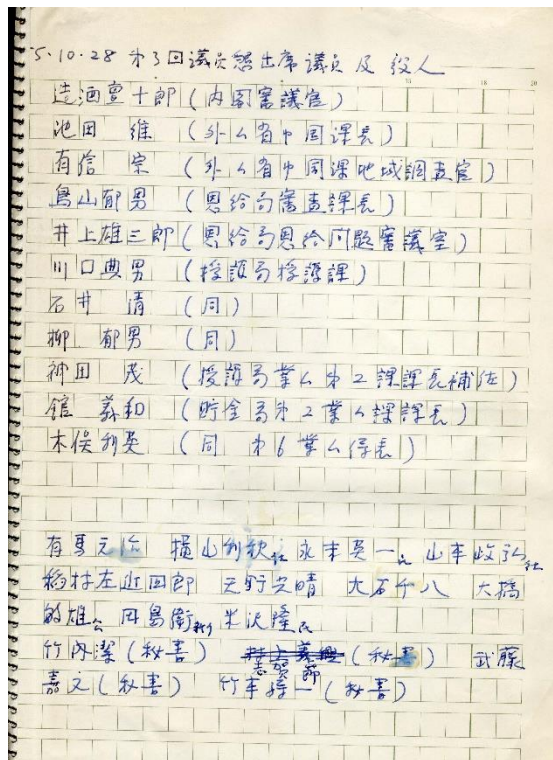 5.10.28 第3回議員懇出席議員及役人
造酒亶十郎(内閣審議官)
池田 維 (外ム省中国課長)
有信 宗 (外ム省中国課地域調査官)
鳥山郁男 (恩給局審査課長)
井上雄三郎(恩給局恩給問題審議室)
川口典男 (援護局援護課)
石井 清 (同)
柳 郁男 (同)
神田 茂 (援護局業ム第2課課長補佐)
舘 義和 (貯金局第2業ム課課長)
木俣利英 (同 第6業ム係長)
有馬元治 横山利秋社 永末英一民 山本政弘社
稲村左近四郎 天野光晴 大石千八 大橋
敏雄公 田島衛新自 米沢隆民
竹内潔(秘書) 志賀節(秘書) 武藤
嘉文(秘書) 竹本孫一(秘書)